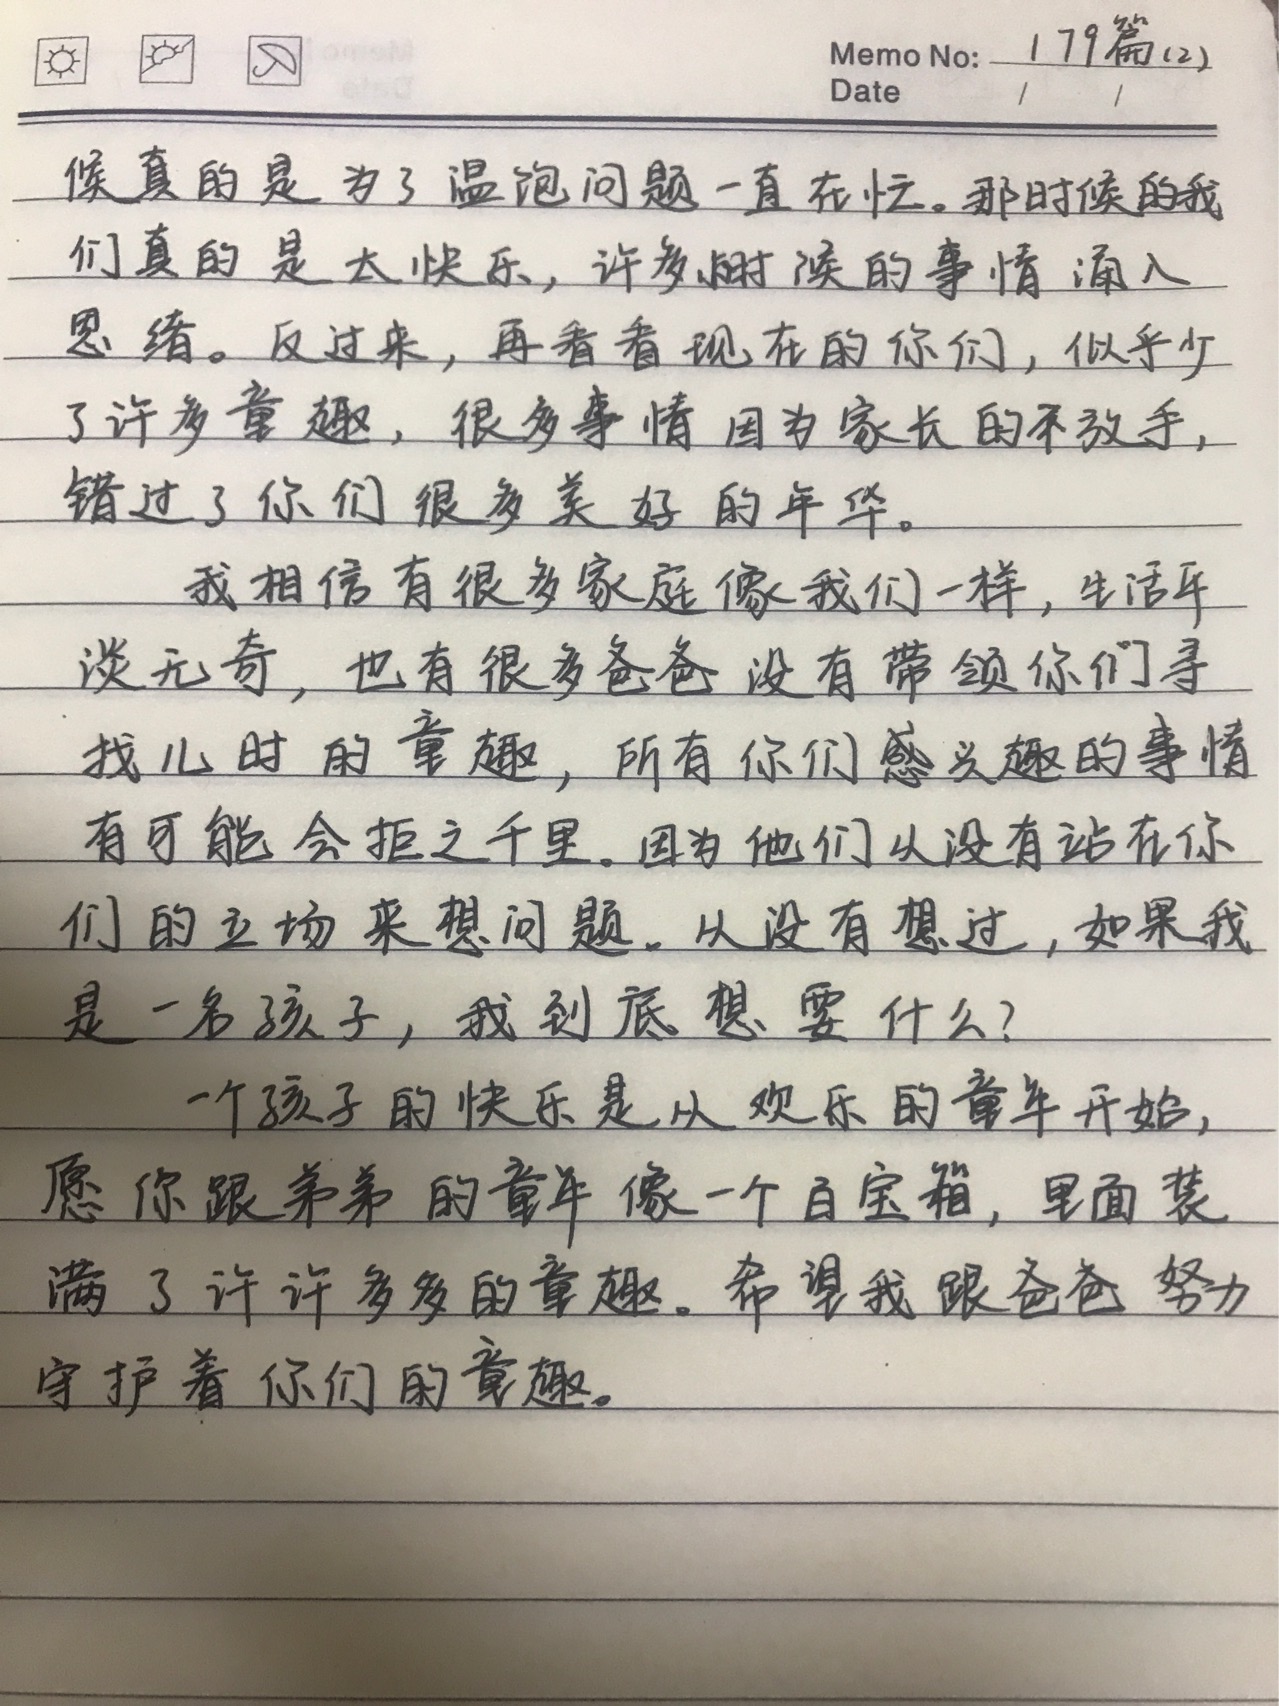 Memo No: 179篇(2)
Date / /
候真的是为了温饱问题一直在忙。那时候的我
们真的是太快乐，许多小时候的事情涌入
思绪。反过来，再看看现在的你们，似乎少
了许多童趣，很多事情因为家长的不放手，
错过了你们很多美好的年华。
我相信有很多家庭像我们一样，生活平
淡无奇，也有很多爸爸没有带领你们寻
找儿时的童趣，所有你们感兴趣的事情
有可能会拒之千里。因为他们从没有站在你
们的立场来想问题。从没有想过，如果我
是一名孩子，我到底想要什么？
一个孩子的快乐是从欢乐的童年开始，
愿你跟弟弟的童年像一个百宝箱，里面装
满了许许多多的童趣。希望我跟爸爸努力
守护着你们的童趣。